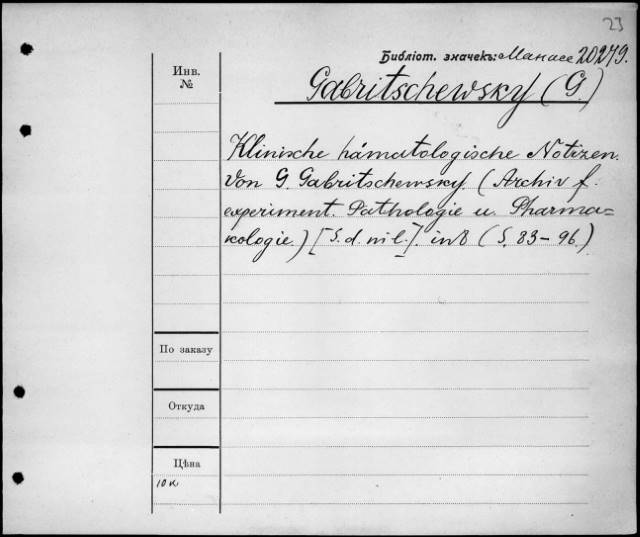 23
Библіот. значекъ: Манассе 20279.
Инв.
№
Gabritschewsky (G.)
Klinische hämatologische Notizen.
Von G. Gabritschewsky. (Archiv f.
experiment. Pathologie u. Pharma=
kologie.) [S. d. ni l.]. in 8 (S. 83-96.)
По заказу
Откуда
Цѣна
10 к